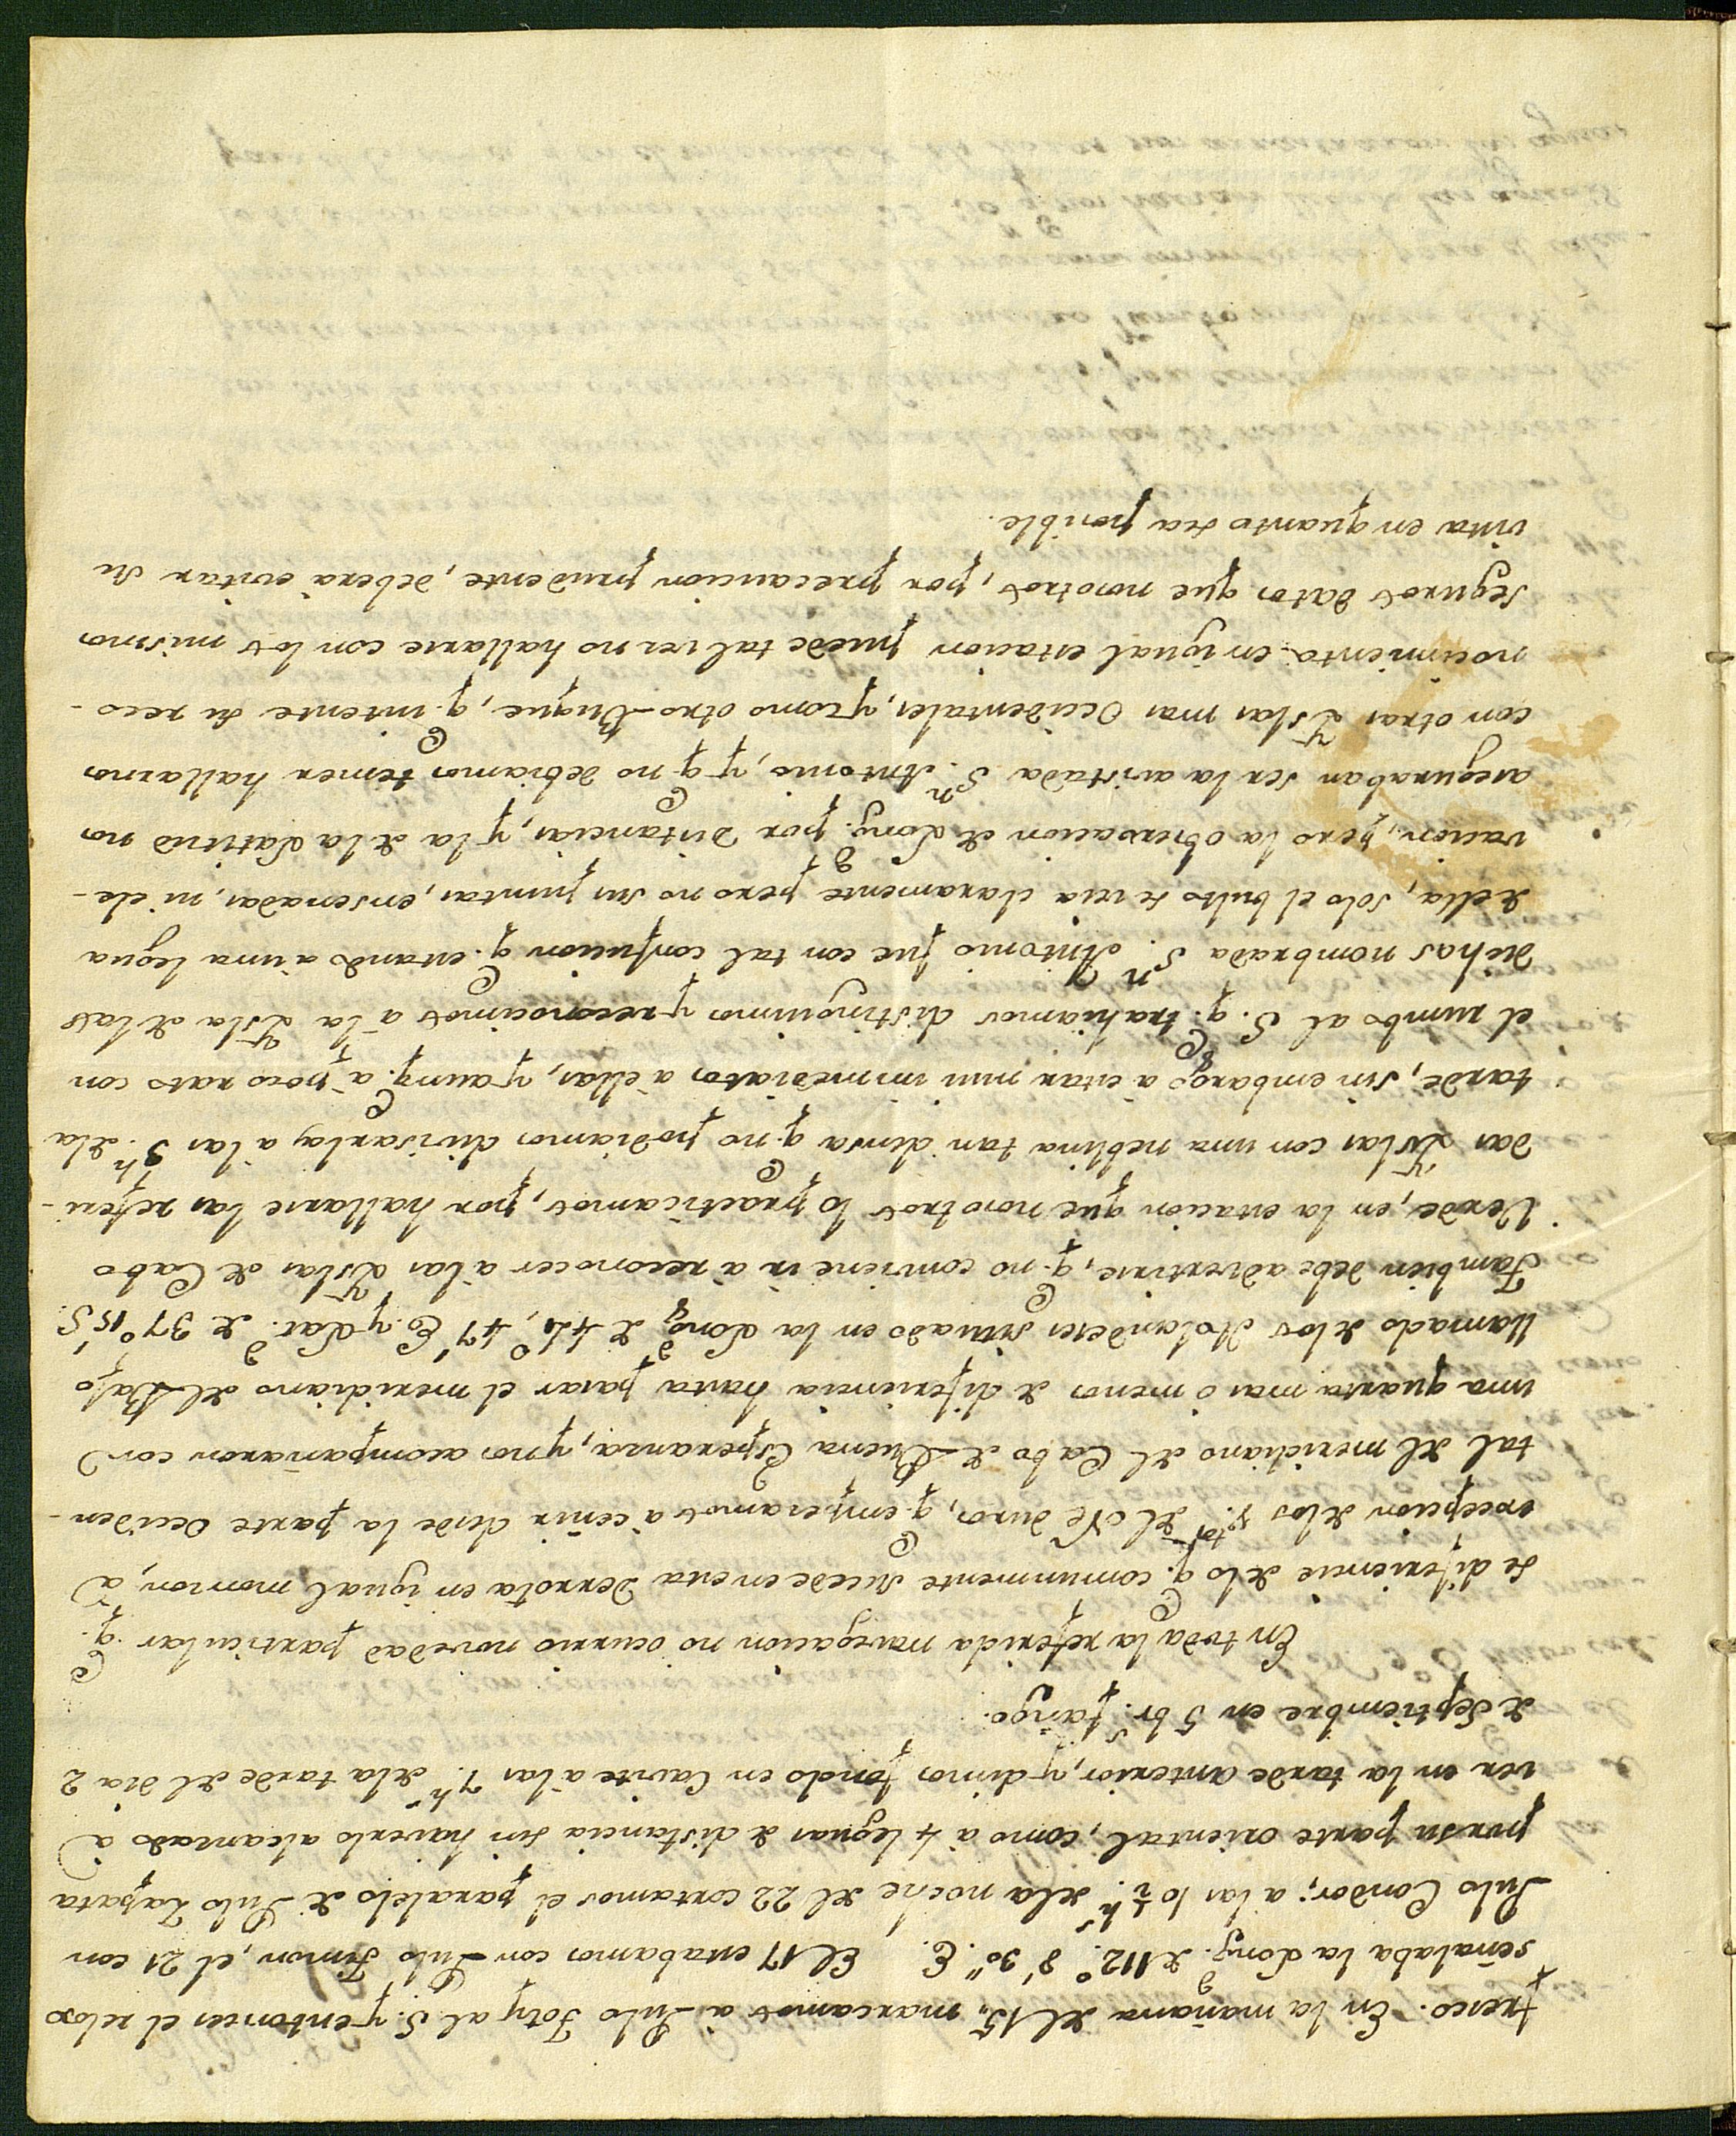 fresco. En la mañana del 15,, marcamos à Pulo Toty al S. y entonces el relox
señalaba la Long.d de 112.° 8' 30" E. El 17 estabamos con Pulo Timon, el 21 con
Pulo Condor; a las 10 ½ h.s dela noche del 22 cortamos el paralelo de Pulo Zapata
por su parte oriental, como à 4 leguas de distancia sin haverlo alcanzado à
ver en la tarde anterior, y dimos fondo en Cavite a las 7 h.s dela tarde del dia 2
de Septiembre en 5 br.s fango.
En toda la referida navegacion no ocurrio novedad particular q.e
se diferencie delo q.e comunmente sucede en esta Derrota en igual monson, à
excepcion delos v.tos del NE duros, q.e empezamos à ceñir desde la parte Occiden-
tal del meridiano del Cabo de Buena Esperanza, y nos acompañaron con
una quarta mas ò menos de diferiencia hasta pasar el meridiano del Bajo
llamado delos Holandeses situado en la Long.d de 44° 47' E.o y Lat.d de 37° 15' S.
Tambien debe advertirse, q.e no conviene ir à reconocer à las Yslas de Cabo
Verde, en la estacion que nosotros lo practicamos, por hallarse las referi-
das Yslas con una neblina tan densa q.e no podiamos divisarlas a las 3 h.s dela
tarde, sin embargo à estar mui inmediatos a ellas, y aunq.e à poco rato con
el rumbo al S. q.e trahiamos distinguimos y reconocimos à la Ysla de las
dichas nombrada S.n Antonio fue con tal confusion q.e estando à una legua
de ella, solo el bulto se veia claramente pero no sus puntas, ensenadas, ni ele-
vacion, pero la observacion de Long.d por Distancias, y la de la Latitud nos
aseguraban ser la avistada S.n Antonio, y q.e no debiamos temer hallarnos
con otras Yslas mas Occidentales, y como otro Buque, q.e intente su reco-
nocimiento en igual estacion puede tal vez no hallarse con los mismos
seguros datos que nosotros, por precaucion prudente, deberà evitar su
vista en quanto sea posible.